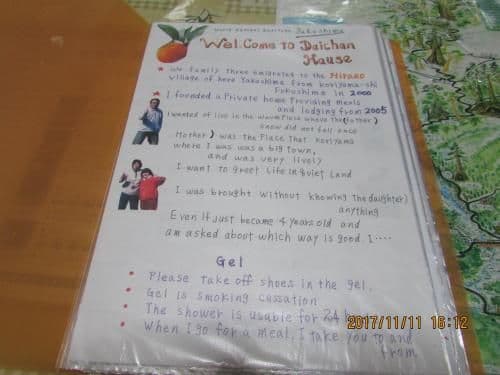 Yakushima
Welcome to Daichan
House
We family three emigrated to the Hirano
village of here Yakushima from koriyama-shi
Fukushima in 2000
I founded a Private home Providing meals
and lodging from 2005
I wanted of live in the warm Place where the (father)
snow did not fall once
Mother) was the Place that Koriyama
where I was was a big town,
and was very lively
I want to greet Life in quiet Land
I was brought without knowing The daughter)
anything
Even if just became 4 years old and
am asked about which way is good I....
Gel
Please take off shoes in the gel.
Gel is smoking cassation
The shower is usable for 24
When I go for a meal, I take you to and
from
2017/11/11 16:12